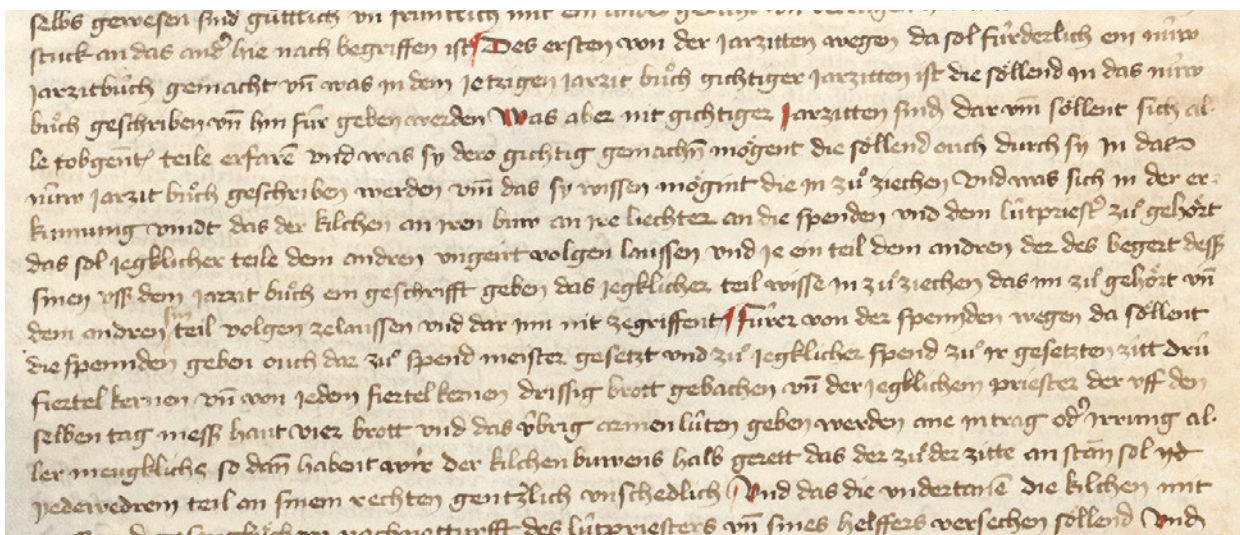 selbs gewesen sind gütlich vn früntlich mit ein ander
stuck an das and's hie nach begriffen ist Des ersten von der Jarzitten wegen da sol fürderlich ein nüw
Jarzitbůch gemacht vn̄ was in dem Jetzigen Jarzit bůch gichtiger Jarzitten ist die söllend in das nüw
bůch geschriben vn̄ hin für geben werden Was aber nit gichtiger Jarzitten sind dar vm̄ söllent sich al-
le teile erfarē vnd was sy dero gichtig gemachn̄ mögent die söllend ouch durch sy In das
nüw Jarzit bůch geschriben werden vm̄ das sy wissen mögint die in zů ziechen Vnd was sich in der er-
kunnung vindt das der kilchen an iren buw an ire liechter an die spenden vnd dem lütpriest' zů gehört
das sol Jegklicher teile dem andren vngeirt volgen laussen vnd Je ein teil dem andren der des begert dess
sinen vss dem Jarzit bůch ein geschrifft geben das Jegklicher teil wisse in zů ziechen das im zů gehört vn̄
dem andren sin teil volgen zelaussen vnd dar Inn nit zegriffent Fürer von der spennden wegen da söllent
die spennden geben ouch dar zů spend meister gesetzt vnd zů Jegklicher spend zů Ir gesetzten zitt drü
fiertel kernen vn̄ von Jedem fiertel kernen drissig brott gebachen vn̄ der Jegklichem priester der vff den
selben tag mess haut vier brott vnd das übrig armen lüten geben werden ane intrag od' Irrung al-
ler mengklichs so dan̄ habent wir der kilchen buwens halb gerett das der zů der zitte an stan̄ sol
Jedewedrem teil an sinem rechten gentzlich vnschedlich Vnd das die vndertanē die kilchen mit
nach notturfft des lütpriesters vn̄ sines helffers versechen söllend Vnd